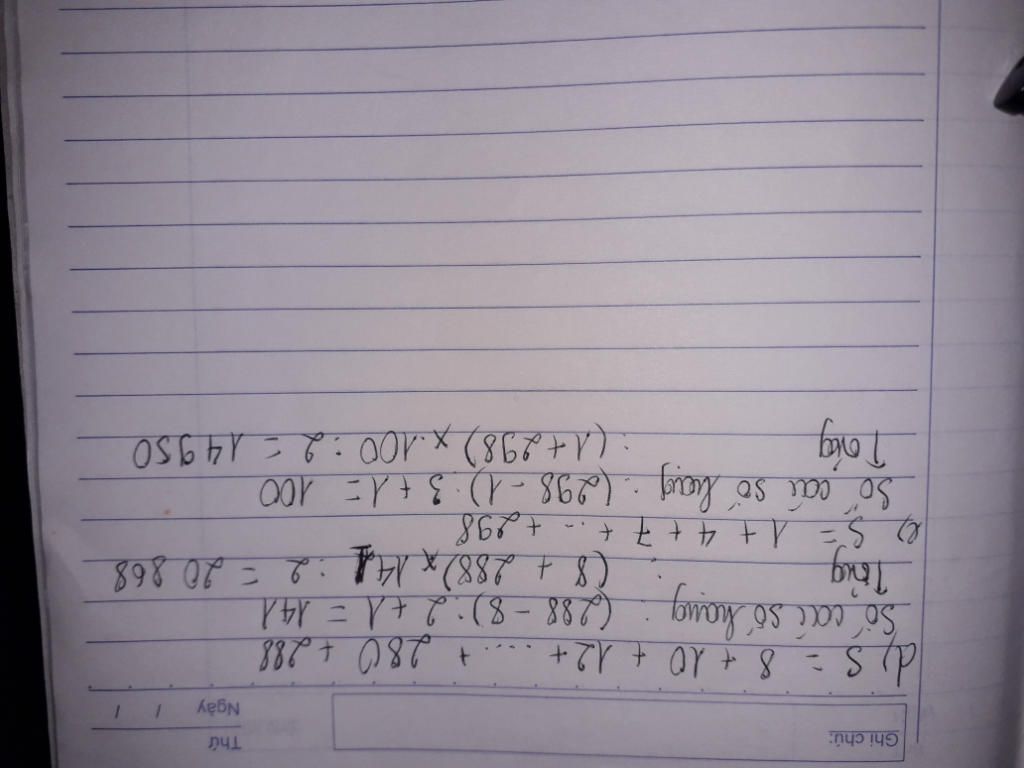 Ghi chú:
Thứ
Ngày / /
d) S = 8 + 10 + 12 + .... + 280 + 288
Số các số hạng : (288 - 8) : 2 + 1 = 141
Tổng : (8 + 288) x 141 : 2 = 20 868
e) S = 1 + 4 + 7 + ... + 298
Số các số hạng : (298 - 1) : 3 + 1 = 100
Tổng : (1 + 298) x 100 : 2 = 14 950